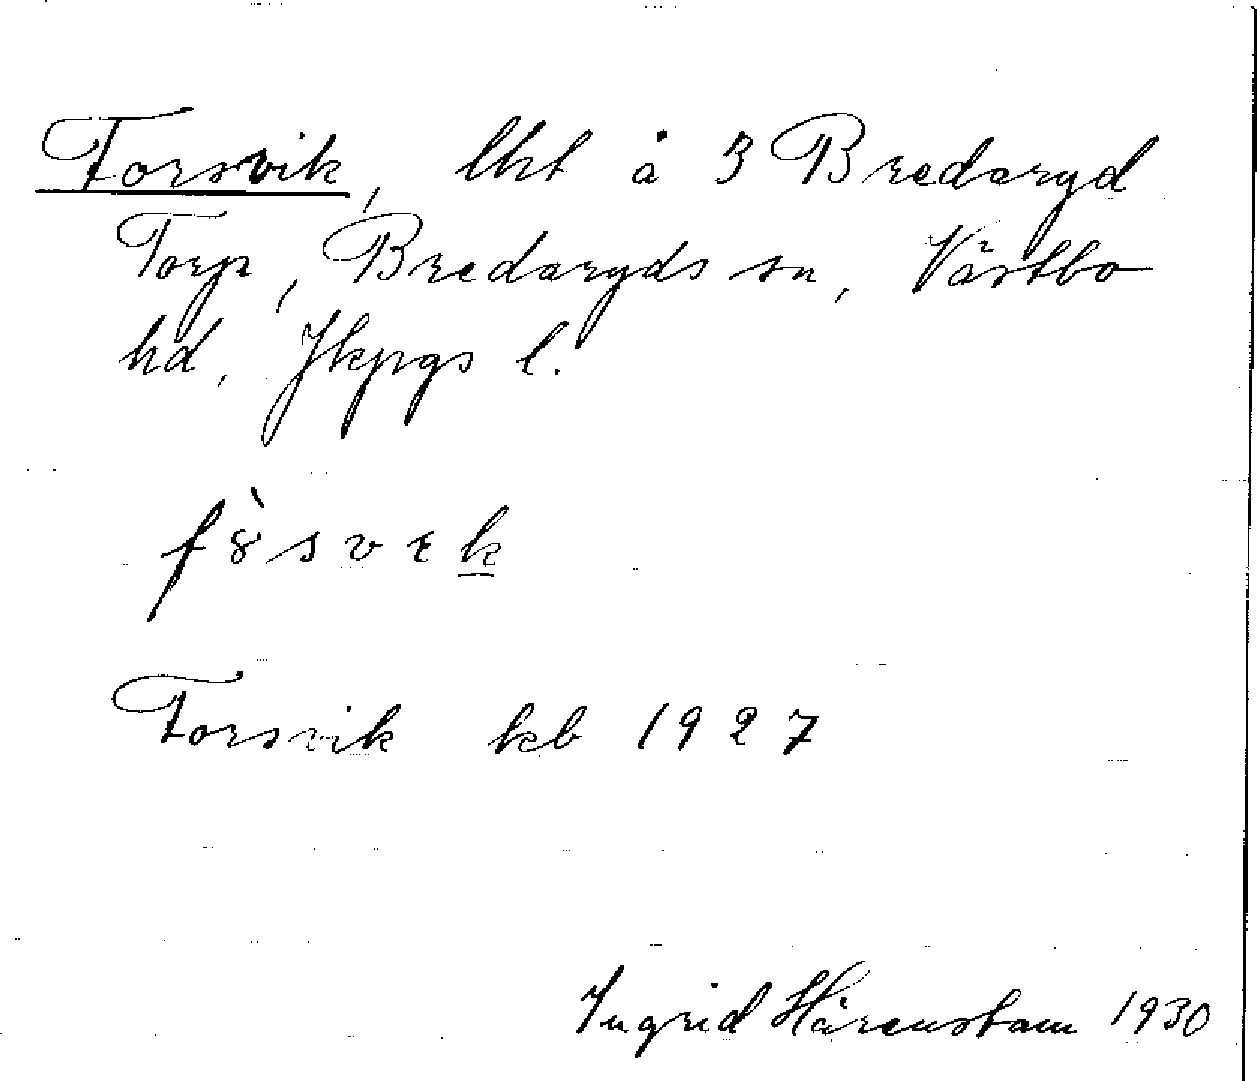 Forsvik, lht å 3 Bredaryd
Torp, Bredaryds sn, Västbo
hd, Jkpgs l.
Forsvik kb 1927
Ingrid Härenstam 1930